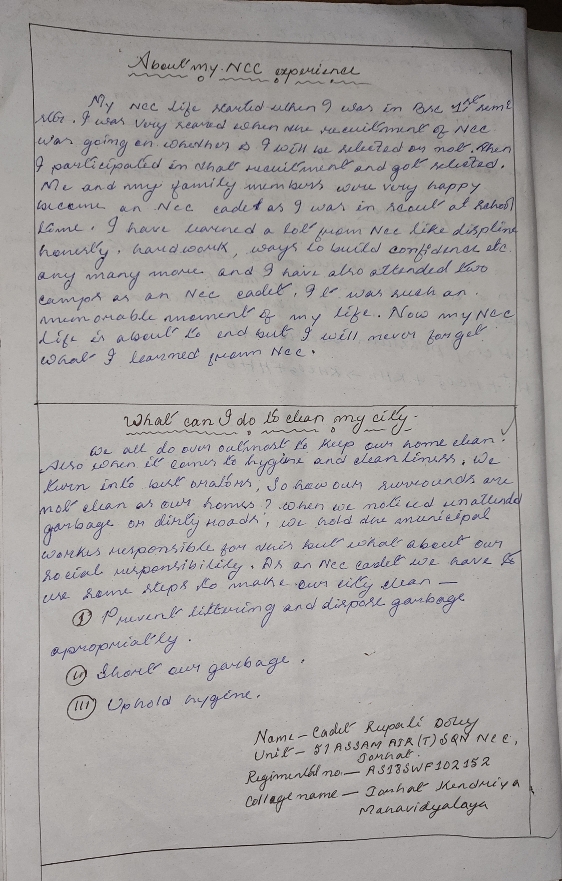 About my NCC experience
My NCC life started when I was in Bsc 1st sem
str. I was very scared when the recuitment of NCC
was going on whether I will be selected or not. Then
I participated in that recuitment and got selected.
Me and my family members were very happy
become an Ncc cadet as I was in scout at school
time. I have learned a lot from Ncc like displine
honesty, hardwork, ways to build confidence etc.
any many more and I have also attended two
camps as an Ncc cadet. It was such an
memorable moment of my life. Now my Ncc
life is about to end but I will never forget
what I learned from Ncc.
What can I do to clean my city.
We all do our outmost to keep our home clean.
Also when it comes to hygiene and cleanliness. We
turn into best orators, So how our surrounds are
not clean as our homes? When we noticed unattended
garbage or dirty roads, we hold the municipal
workes responsible for this but what about our
social responsibility. As an Ncc cadet we have to
use some steps to make our city clean —
(I) Prevent littering and dispose garbage
apropriatly.
(II) Short our garbage.
(III) Uphold hygene.
Name - Cadet Rupali Doley
Unit - 51 ASSAM AIR (T) SQN Ncc,
Jorhat.
Regimental no. - AS18SWF102152
Collage name - Jorhat Kendriya
Mahavidyalaya